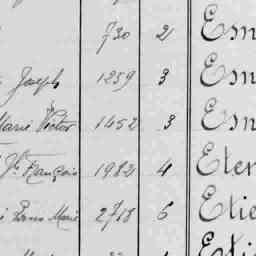 730 2 Esn
Joseph 1259 3 Esn
Marie Victor 1452 3 Esn
Jh François 1982 4 Eter
Marie 2718 6 Etie